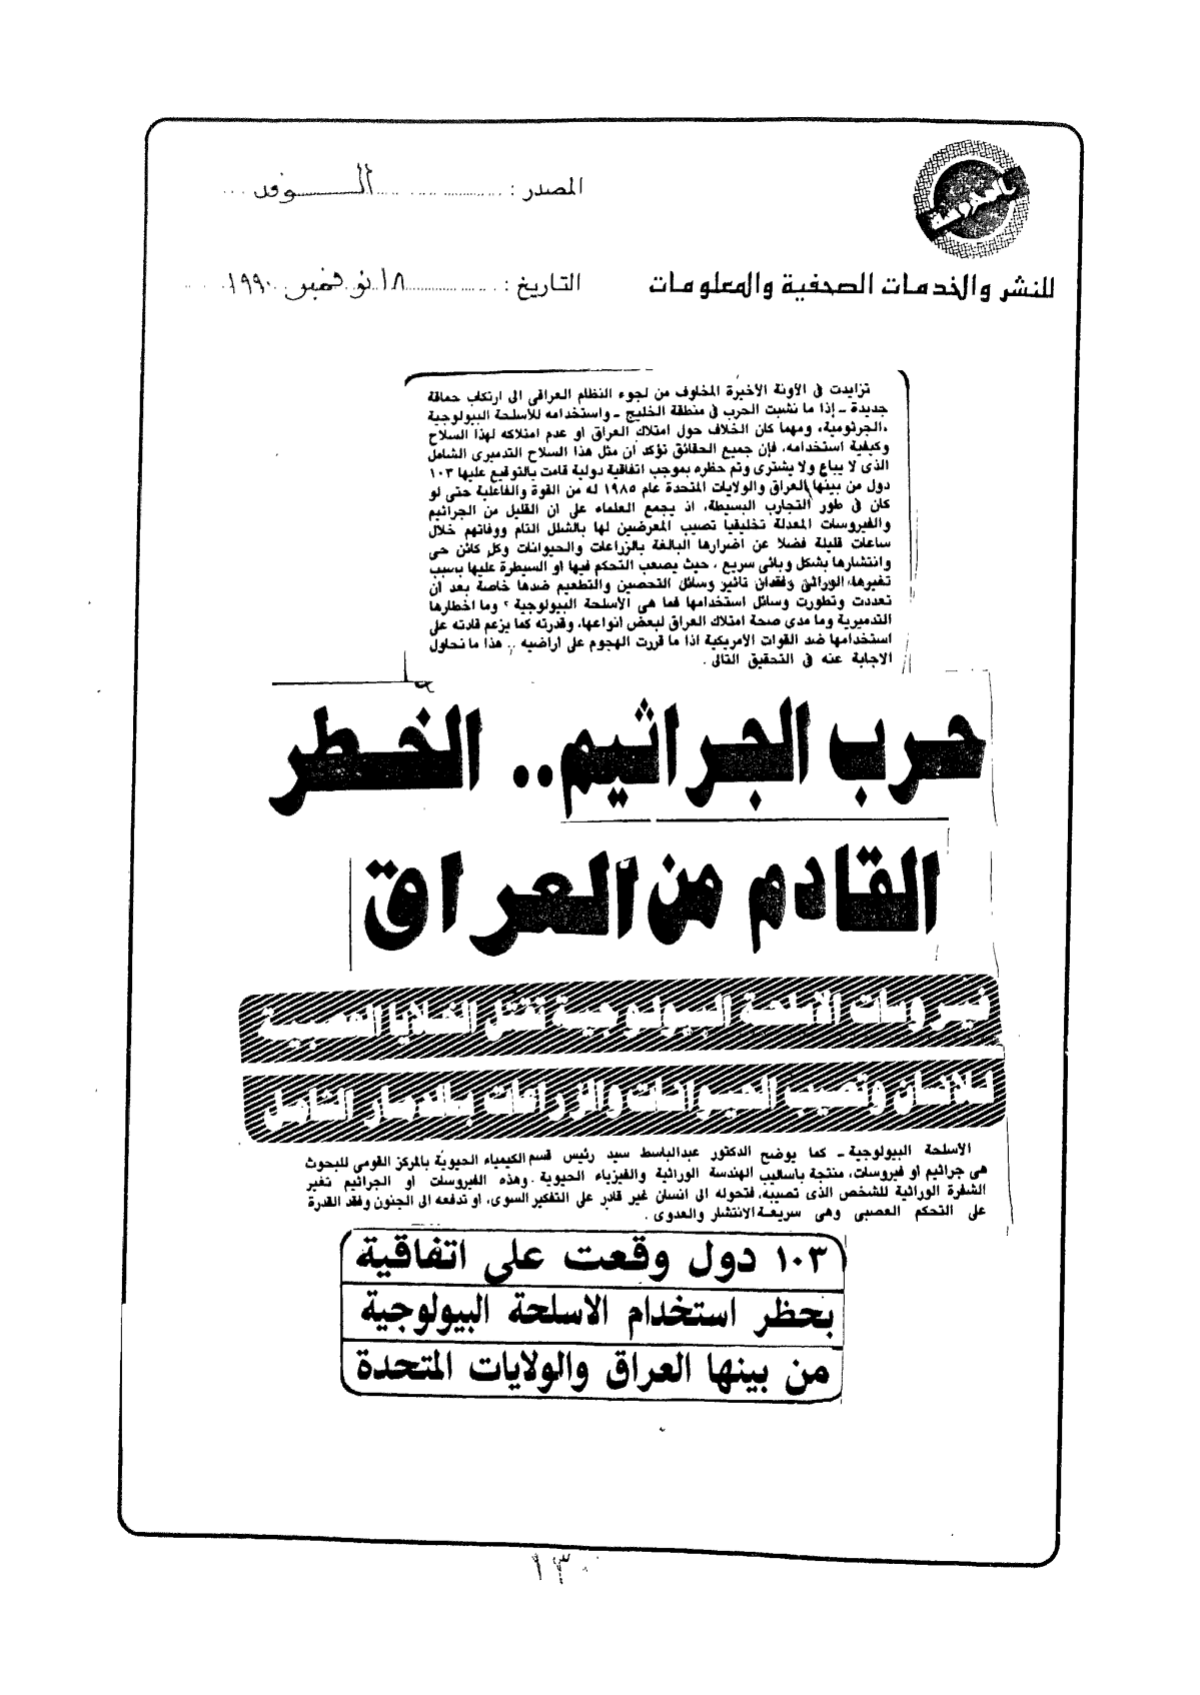 المصدر : الوفد
للنشر والخدمات الصحفية والمعلومات
التاريخ : ١٨ نوفمبر ١٩٩٠
تزايدت في الآونة الأخيرة المخاوف من لجوء النظام العراقى الى ارتكاب حماقة
جديدة ــ إذا ما نشبت الحرب في منطقة الخليج ــ واستخدامه للأسلحة البيولوجية
«الجرثومية، ومهما كان الخلاف حول امتلاك العراق او عدم امتلاكه لهذا السلاح
وكيفية استخدامه، فإن جميع الحقائق تؤكد أن مثل هذا السلاح التدميرى الشامل
الذى لا يباع ولا يشترى وتم حظره بموجب اتفاقية دولية قامت بالتوقيع عليها ١٠٣
دول من بينها العراق والولايات المتحدة عام ١٩٨٥ له من القوة والفاعلية حتى لو
كان في طور التجارب البسيطة، اذ يجمع العلماء على ان القليل من الجراثيم
والفيروسات المعدلة تخليقيا تصيب المعرضين لها بالشلل التام ووفاتهم خلال
ساعات قليلة فضلا عن اضرارها البالغة بالزراعات والحيوانات وكل كائن حى
وانتشارها بشكل وبائى سريع ، حيث يصعب التحكم فيها او السيطرة عليها بسبب
تغيرها الوراثى وفقدان تاثير وسائل التحصين والتطعيم ضدها خاصة بعد أن
تعددت وتطورت وسائل استخدامها فما هى الأسلحة البيولوجية ؟ وما اخطارها
التدميرية وما مدى صحة امتلاك العراق لبعض انواعها، وقدرته كما يزعم قادته على
استخدامها ضد القوات الأمريكية اذا ما قررت الهجوم على اراضيه .. هذا ما نحاول
الاجابة عنه في التحقيق التالى .
حرب الجراثيم.. الخطر
القادم من العراق
فيروسات الاسلحة البيولوجية تقتل الخلايا العصبية
للانسان وتصيب الحيوانات والزراعات بالدمار الشامل
الاسلحة البيولوجية ــ كما يوضح الدكتور عبدالباسط سيد رئيس قسم الكيمياء الحيوية بالمركز القومى للبحوث
هى جراثيم او فيروسات، منتجة باساليب الهندسة الوراثية والفيزياء الحيوية . وهذه الفيروسات او الجراثيم تغير
الشفرة الوراثية للشخص الذى تصيبه، فتحوله الى انسان غير قادر على التفكير السوى، او تدفعه الى الجنون وفقد القدرة
على التحكم العصبى وهى سريعة الانتشار والعدوى .
١٠٣ دول وقعت على اتفاقية
بحظر استخدام الاسلحة البيولوجية
من بينها العراق والولايات المتحدة
١٣٠